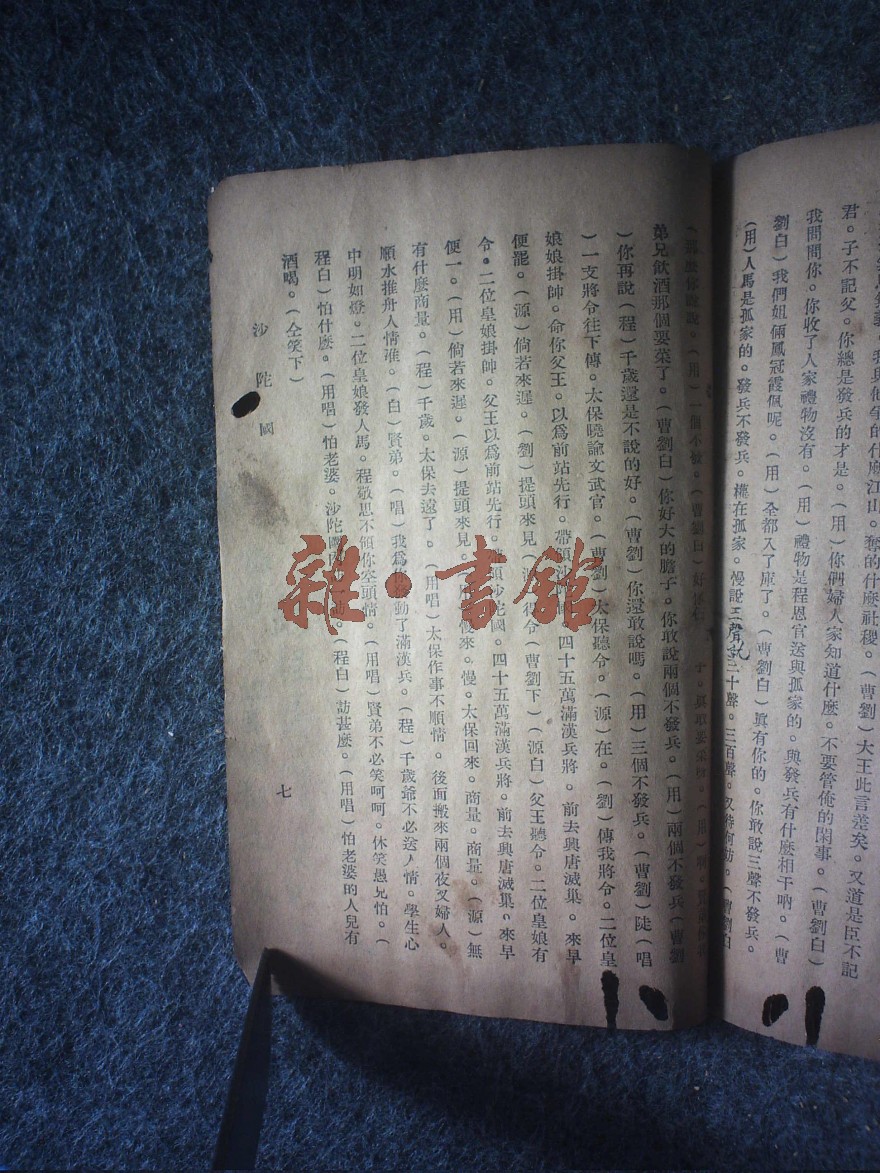 我與他爭的什麽江山。奪的什麽社稷。(曹劉)大王此言差矣。又道是臣不記
君。子不記父。你總是發兵的才是。(用)你們婦人家知道什麽。不要管俺的閑事。(曹劉白)
我問問你。你收了人家禮物沒有。(用)禮物是程恩官送與孤家的。與發兵有什麽相干吶。(曹
劉白)我們姐倆鳳冠霞佩呢。(用)全都入了庫了。(曹劉白)眞有你的。你敢說三聲不發兵。
(用)人馬是孤家的。發兵不發兵。權在孤家。慢說三聲。三十聲。三百聲。又待何妨。(曹劉白
(用)一個不發。(曹劉白)
弟兄飲酒那個要菜了。(曹劉白)你好大的膽子。你敢說兩個不發兵。(用)兩個不發兵(曹劉
)你再說(程)千歲還是不說的好。(曹劉)你還敢說嗎。(用)三個不發兵。(曹劉)陡(唱
)一支將令往下傳。太保曉諭文武官。(曹劉)太保聽令。(源)在。(劉)傳我將令。二位皇
娘娘掛帥。命你父王。以爲前站先行。帶領沙 四十五萬滿漢兵將。前去興唐滅巢。來早
便罷。(源)倘若來遲。(劉)提頭來見(源)得令(曹劉下)(源白)父王聽令。二位皇娘有
令。二位皇娘掛帥。父王以爲前站先行。帶領沙陀國。四十五萬滿漢兵將。前去興唐滅巢、來早
便一。(用)倘若來遲。(源)提頭來見。 慢來。慢。太保回來。商量。商量。(源)無
有什麽商量。(程)千歲。太保去遠了。(用唱)太保作事不順情。後面搬來兩個夜叉婦人。
順水推舟人情雍。(白)賢弟。(唱)我爲你發動了滿漢兵。(程)千歲爺不必送人情。學生心
中明如燈。二位皇娘發人馬。程敬思不領你空頭情。(用唱)賢弟不必笑呵呵。休笑愚兄怕。(
程白)怕什麽。(用唱)怕老婆。沙陀國內 (程白)訪甚麽。(用唱)怕老婆的人兒有
酒喝。(仝笑下)
沙陀國
七
雜·書館